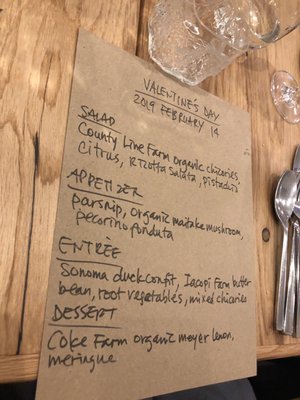 VALENTINE'S DAY
2019 FEBRUARY 14
SALAD
County Line Farm organic chicories,
citrus, ricotta salata, pistachio
APPETIZER
parsnip, organic maitake mushroom,
pecorino fonduta
ENTRÉE
Sonoma duck confit, Iacopi Farm butter
bean, root vegetables, mixed chicories
DESSERT
Coke Farm organic meyer lemon,
meringue